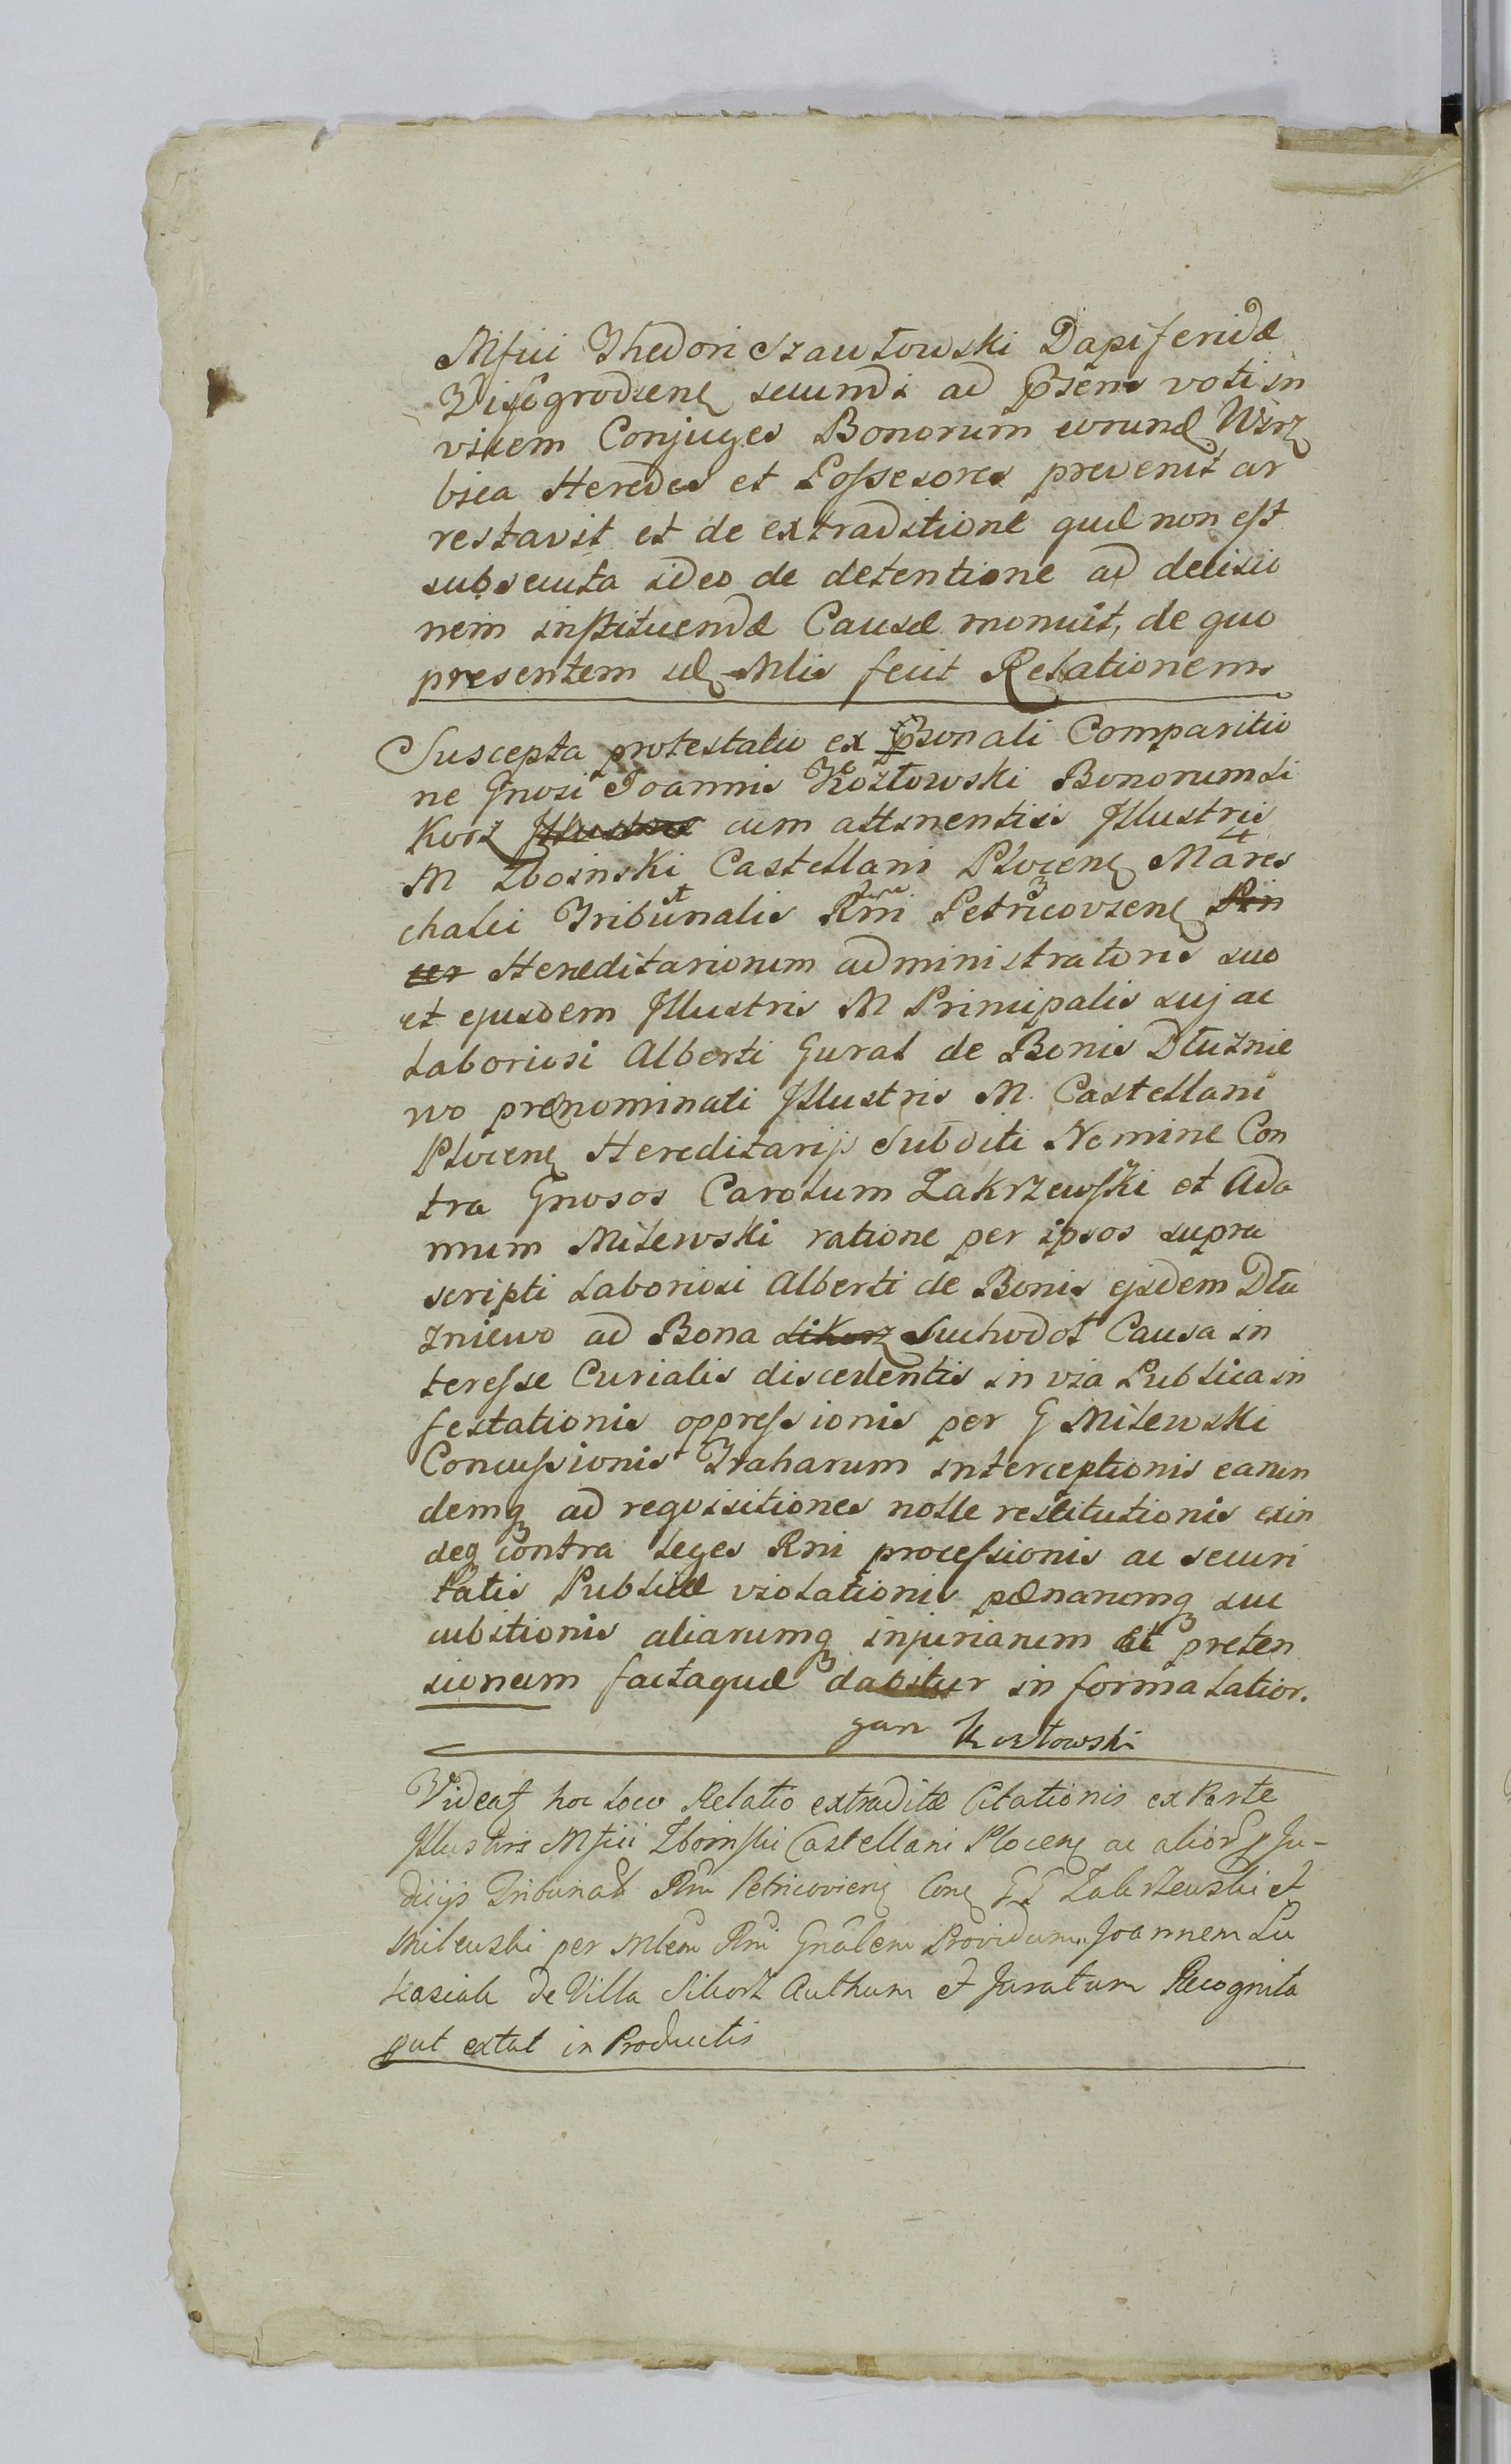 Mfici Thedori Szawłowski Dapiferidæ
Visogrodzenẽ secundi ad p̃sens voti in
vicem Conjuges Bonorum eorund Wirz
bica Heredes et Possesores prevenit ar
restavit et de extraditione quæ non est
subsecuta ideo de detentione ad decisio
nem instituendæ Causæ monuit, de quo
presentem idẽ Mlis fecit Relationem
Suscepta protestatio ex p̃sonali Comparitio
ne Gnosi Joannis Kozłowski Bonorum Si
Korz Illustris cum attinentiis Illustris
M Zboinski Castellani Plocenẽ Mares
chalci Tribunalis Rni Petricoviensẽ Prin
cer Hereditariorum administratoris suo
et ejusdem Illustris M Principalis sui ac
Laboriosi Alberti Gural de Bonis Dłużnie
wo prænominati Illustris M. Castellani
Plocenẽ Hereditarijs Subditi Nomine Con
tra Gnosos Carolum Zakrzewski et Ada
mum Milewski ratione per ipsos supra
scripti Laboriosi Alberti de Bonis ejsdem Dłu
żniewo ad Bona Sikorz Suchodoł Causa in
teresse Curialis discedentis in via Publica in
festationis oppressionis per G Milewski
Concussionis Traharum interceptionis earun
demq ad requisitiones nolle restitutionis exin
deq contra leges Rni processionis ac securi
tatis Publicæ violationis pænarumq suc
cubitionis aliarumq injuriarum et preten
sionum factaquæ dabitur in forma latior.
Jan Kozłowski
Videatz hoc loco Relatio extraditæ Citationis ex Parte
Illustris Mfici Zboinski Castellani Plocenẽ ac alior p Ju-
dicijs Tribunal Rni Petricovienẽ Conẽ GG Zakrzewski et
Milewski per Mlem Rni Gnalem Providum Joannem Lu
kasiak de Villa Sikorz Authum et Juratum Recognita
put extat in Productis